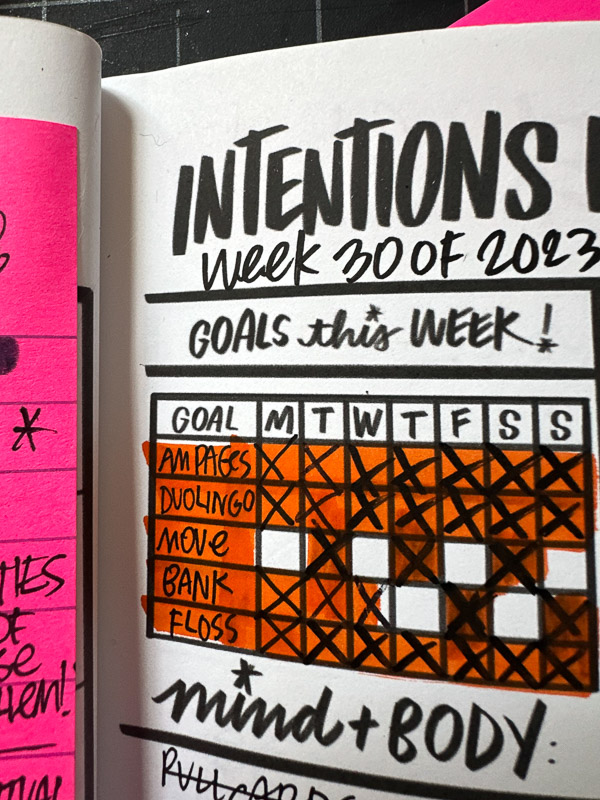 *
OF
INTENTIONS
Week 30 OF 2023
GOALS this WEEK!
GOAL M T W T F S S
AM PAGES X X X X X X X
DUOLINGO X X X X X X X
MOVE X X X
BANK X X X X X
FLOSS X X X X X X X
mind + BODY: